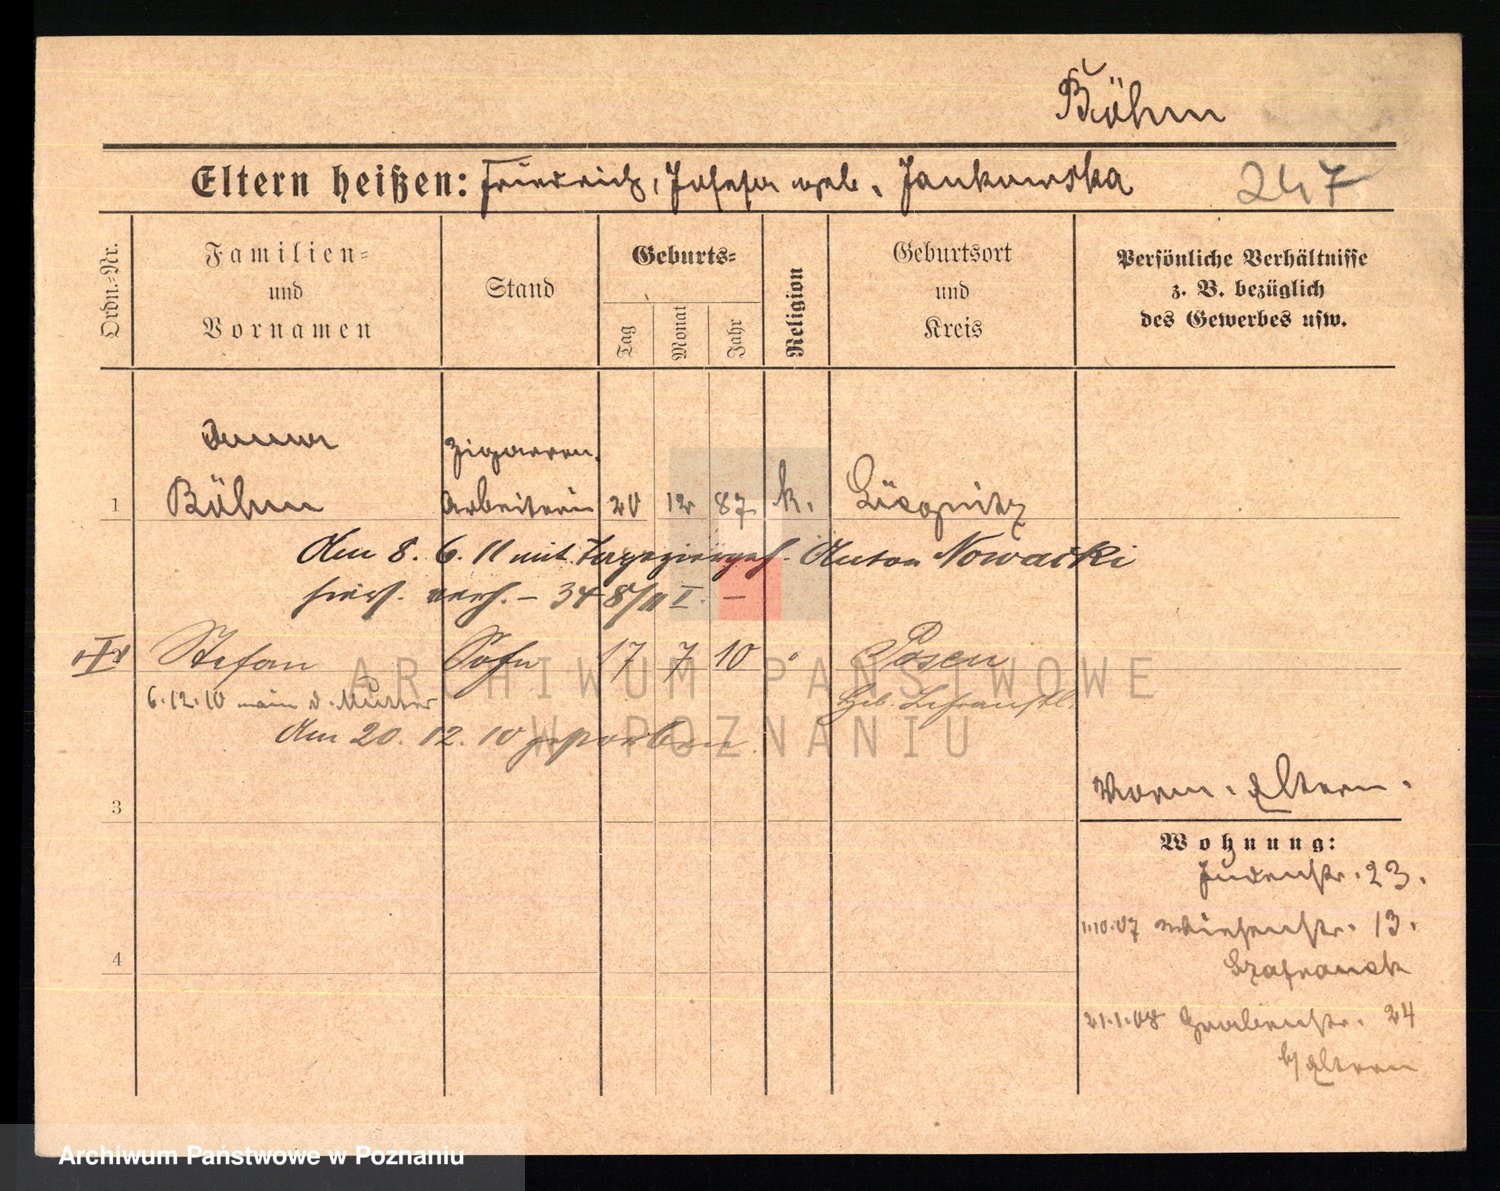 Böhm
Eltern heißen: Friedrich, Josefa geb. Jankowska 247
Ordn.-Nr.
Familien-
und
Vornamen
Stand
Geburts-
Tag
Monat
Jahr
Religion
Geburtsort
und
Kreis
Persönliche Verhältnisse
z. B. bezüglich
des Gewerbes usw.
Zigarren.
1 Böhm Arbeiterin 20 12 87 k.
Am 8. 6. 11 mit Anton Nowacki
34 8/11 I. -
Stefan Sohn 17 7 10 " Posen
6.12.10 d. Mutter
Am 20. 12. 10 gestorben
Vorm. Eltern.
3
Wohnung:
Judenstr. 23.
1.10.07 Wiesenstr. 13.
Szafranek
4
21.1.08 Grabenstr. 24
b/ Eltern
ARCHIWUM PAŃSTWOWE
W POZNANIU
Archiwum Państwowe w Poznaniu